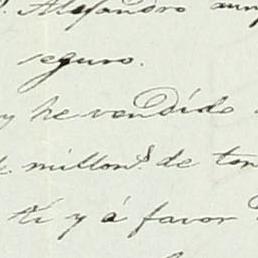 Alejandro aun
seguro.
y he vendido
millon.s de ton
ti y á favor